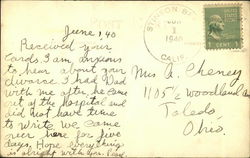 June 1, 40
Received your
Cards. I am anxious
to hear about your
divorce. I had Dad
with me after he come
out of the hospital and
did not have time
to write. We came
over here for five
days. Hope everything
is alright with you.
STINSON BE
JUN
1
1940
CALIF.
1 CENT 1
Mrs A. Cheney
1105½ Woodland
Toledo
Ohio.